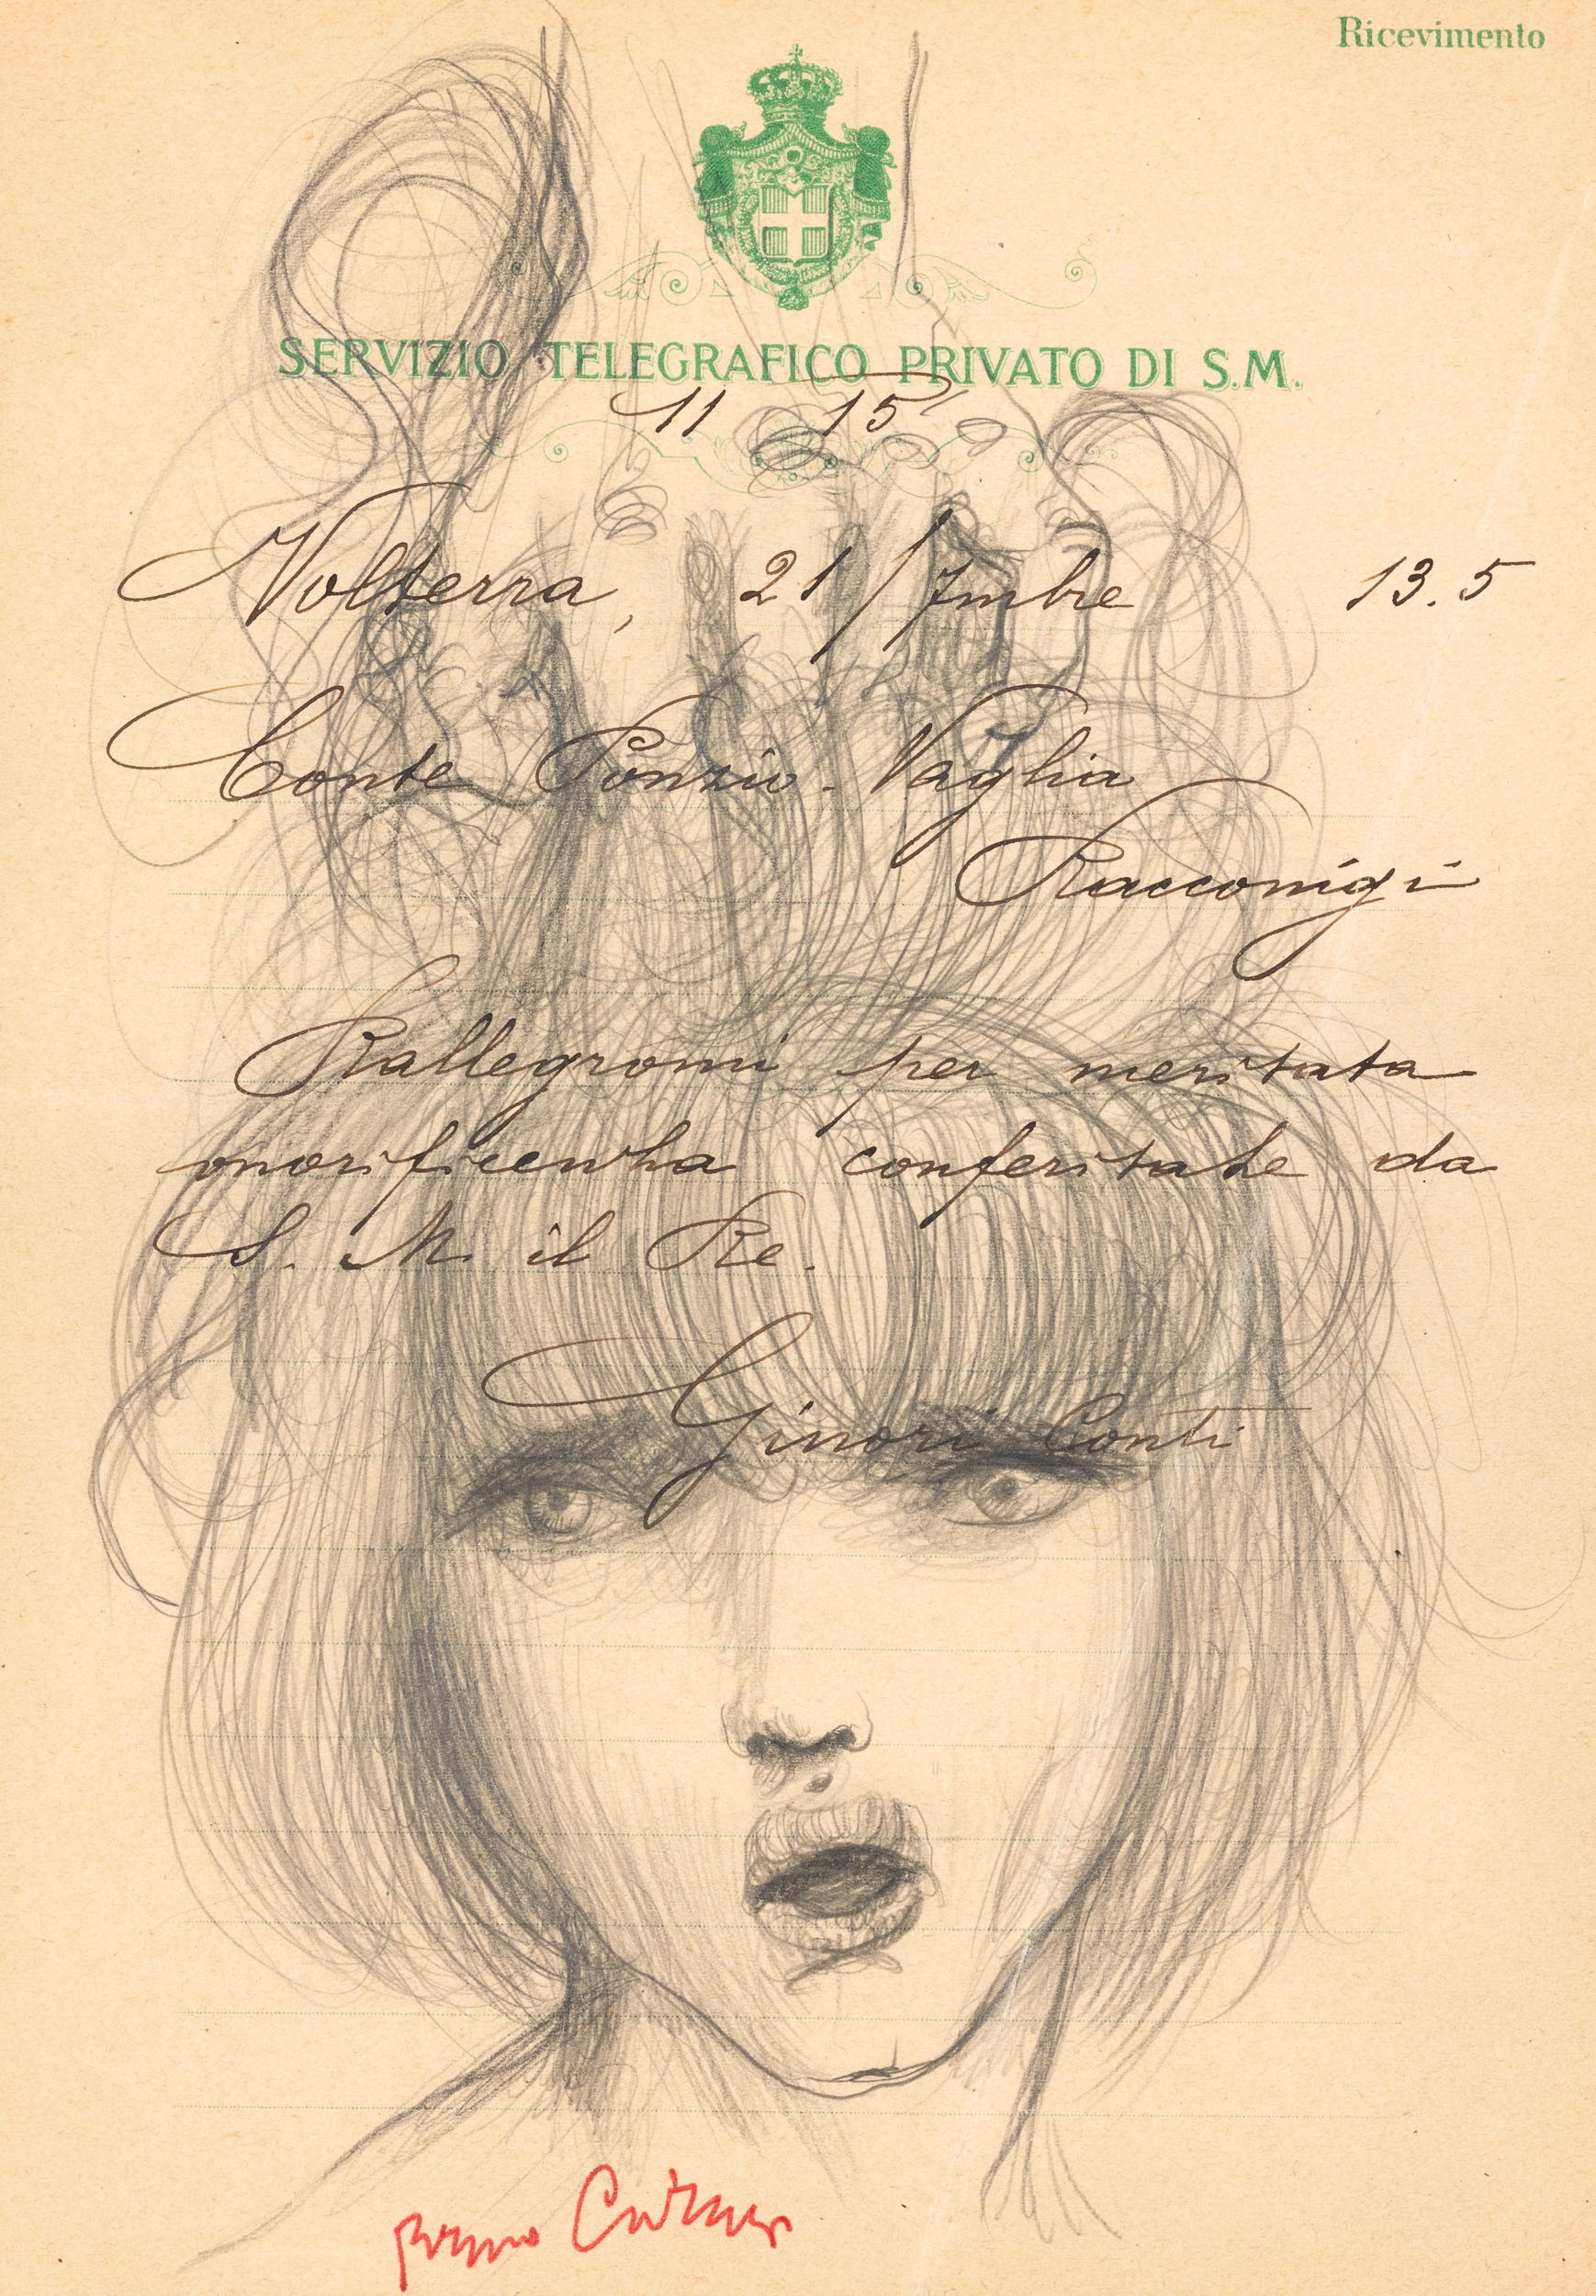 Ricevimento
SERVIZIO TELEGRAFICO PRIVATO DI S.M.
11 15
Volterra, 21/7mbre 13.5
Conte Ponzio. Vaglia
Racconigi
Rallegromi per meritata
onorificenza conferitale da
S. M. il Re.
Ginori Conti
Bruno